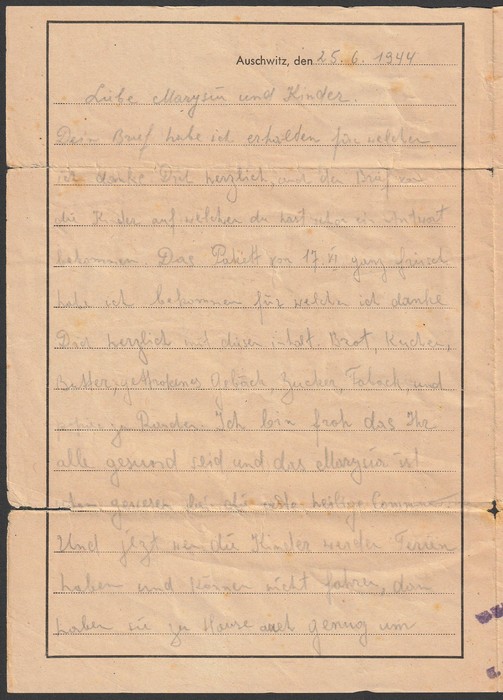 Auschwitz, den 25. 6. 1944
Liebe Marysiu und Kinder.
Dein Brief habe ich erhalden für welchen
ich danke Dich herzlich, und den Brief von
die Kinder auf welchen du hast schon ein Antwort
bekommen Das Pakett von 17. VI ganz frisch
habe ich bekommen für welchen ich danke
Dich herzlich mit disen inhalt. Brot, Kuchen,
Butter, getrokenes Gebäck, Zucker, Taback, und
zu Ich bin froh das Ihr
alle gesund seid und das Marysia ist
schon gewesen bei die erste heilige
Und jezt wen die Kinder werden Ferien
haben und können nicht fahren, dan
haben sie zu Hause auch genug um